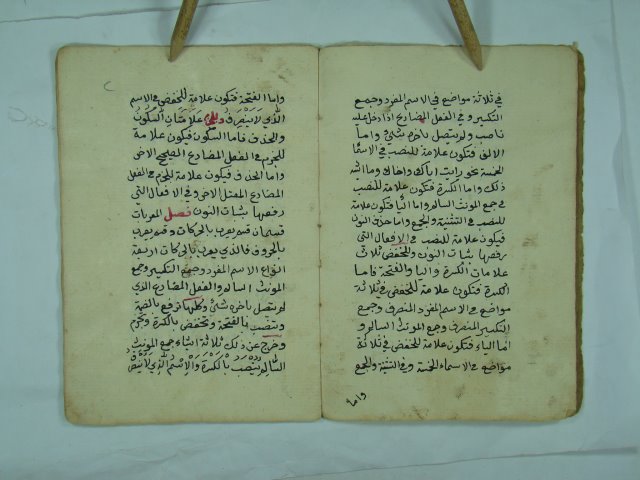 في ثلاثة مواضع في الاسم المفرد وجمع
التكسير وفي الفعل المضارع اذا دخل عليه
ناصب ولم يتصل باخره شئ واما
الالف فتكون علامة للنصب في الاسما
الخمسة نحو رايت اباك واخاك وما اشبه
ذلك واما الكسرة فتكون علامة للنصب
في جمع المونث السالم واما اليا فتكون علامة
للنصب في التثنية والجمع واما حذف النون
فيكون علامة للنصب في الافعال التي
رفعها بثبات النون وللخفض ثلاث
علامات الكسرة واليا والفتحة فاما
الكسرة فتكون علامة للخفض في ثلاثة
مواضع في الاسم المفرد المنصرف وجمع
التكسير المنصرف وجمع المونث السالم و
اما الياء فتكون علامة للخفض في ثلاثة
مواضع في الاسماء الخمسة وفي التثنية والجمع
واما
واما الفتحة فتكون علامة للخفض في الاسم
الذي لا ينصرف وللجزم علامتان السكون
والحذف فاما السكون فيكون علامة
للجزم في الفعل المضارع الصحيح الاخر
واما الحذف فيكون علامة للجزم في الفعل
المضارع المعتل الاخر وفي الافعال التي
رفعها بثبات النون فصل المعربات
قسمان قسم يعرب بالحركات وقسم يعرب
بالحروف فالذي يعرب بالحركات اربعة
انواع الاسم المفرد وجمع التكسير وجمع
المونث السالم والفعل المضارع الذي
لم يتصل باخره شئ وكلها ترفع بالضمة
وتنصب بالفتحة وتخفض بالكسرة وتجزم
وخرج عن ذلك ثلاثة اشياء جمع المونث
السالم ينصب بالكسرة والاسم الذي لا ينصرف